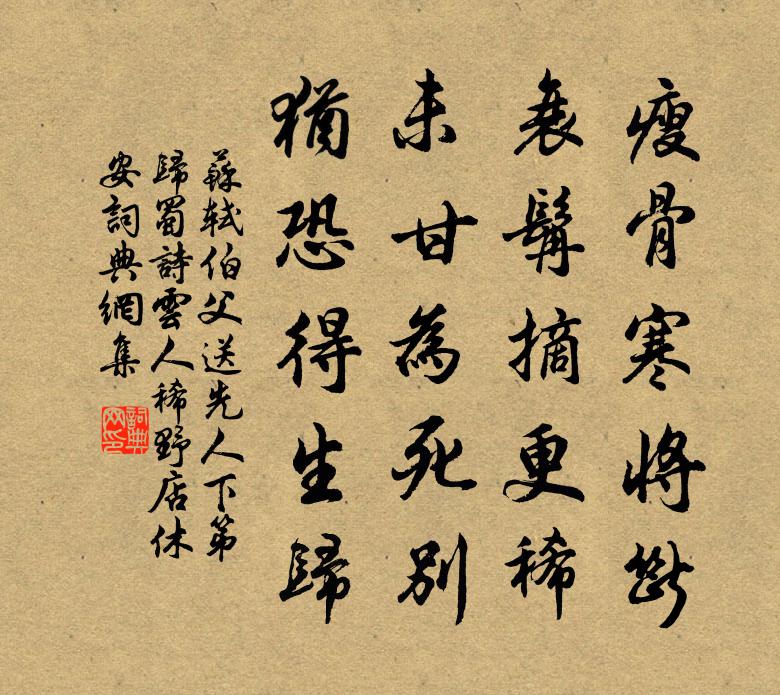 瘦骨寒將斷
衰髯摘更稀
未甘為死別
猶恐得生歸
蘇軾伯父送先人下第
歸蜀詩雲人稀野店休
安詞典網集
詞典
网印